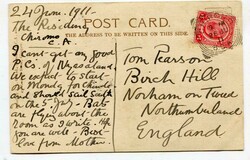 24 June. 1911.
The Residency
Chiromo
C.A.
POST CARD.
THE ADDRESS TO BE WRITTEN ON THIS SIDE.
I can't get any good
P.Cs. of Nyasaland
We expect to start
on Monday for
and
on the 5th
are flying about the
room as I write. Hope
you are well. Best
love from Mother.
Tom Pearson
Birch Hill
Norham on Tweed
Northumberland
England